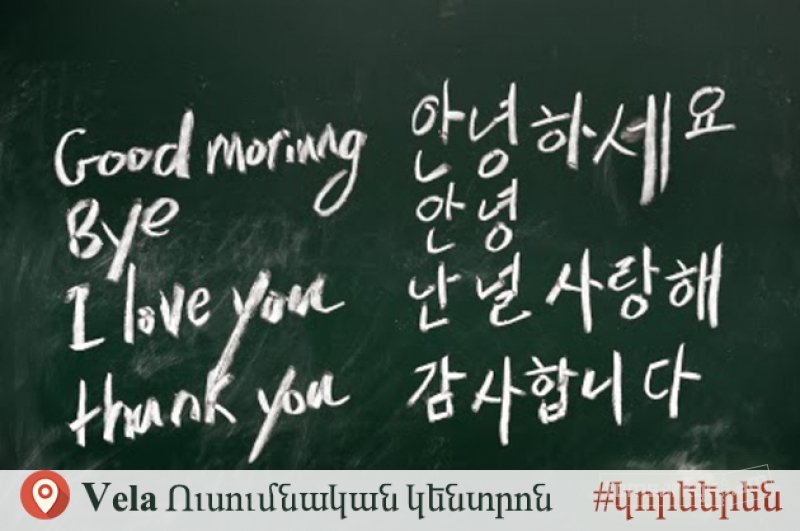 Good morinng 안녕하세요
Bye 안녕
I love you 난 널 사랑해
thank you 감사합니다
Vela Ուսումնական կենտրոն #կորեներեն